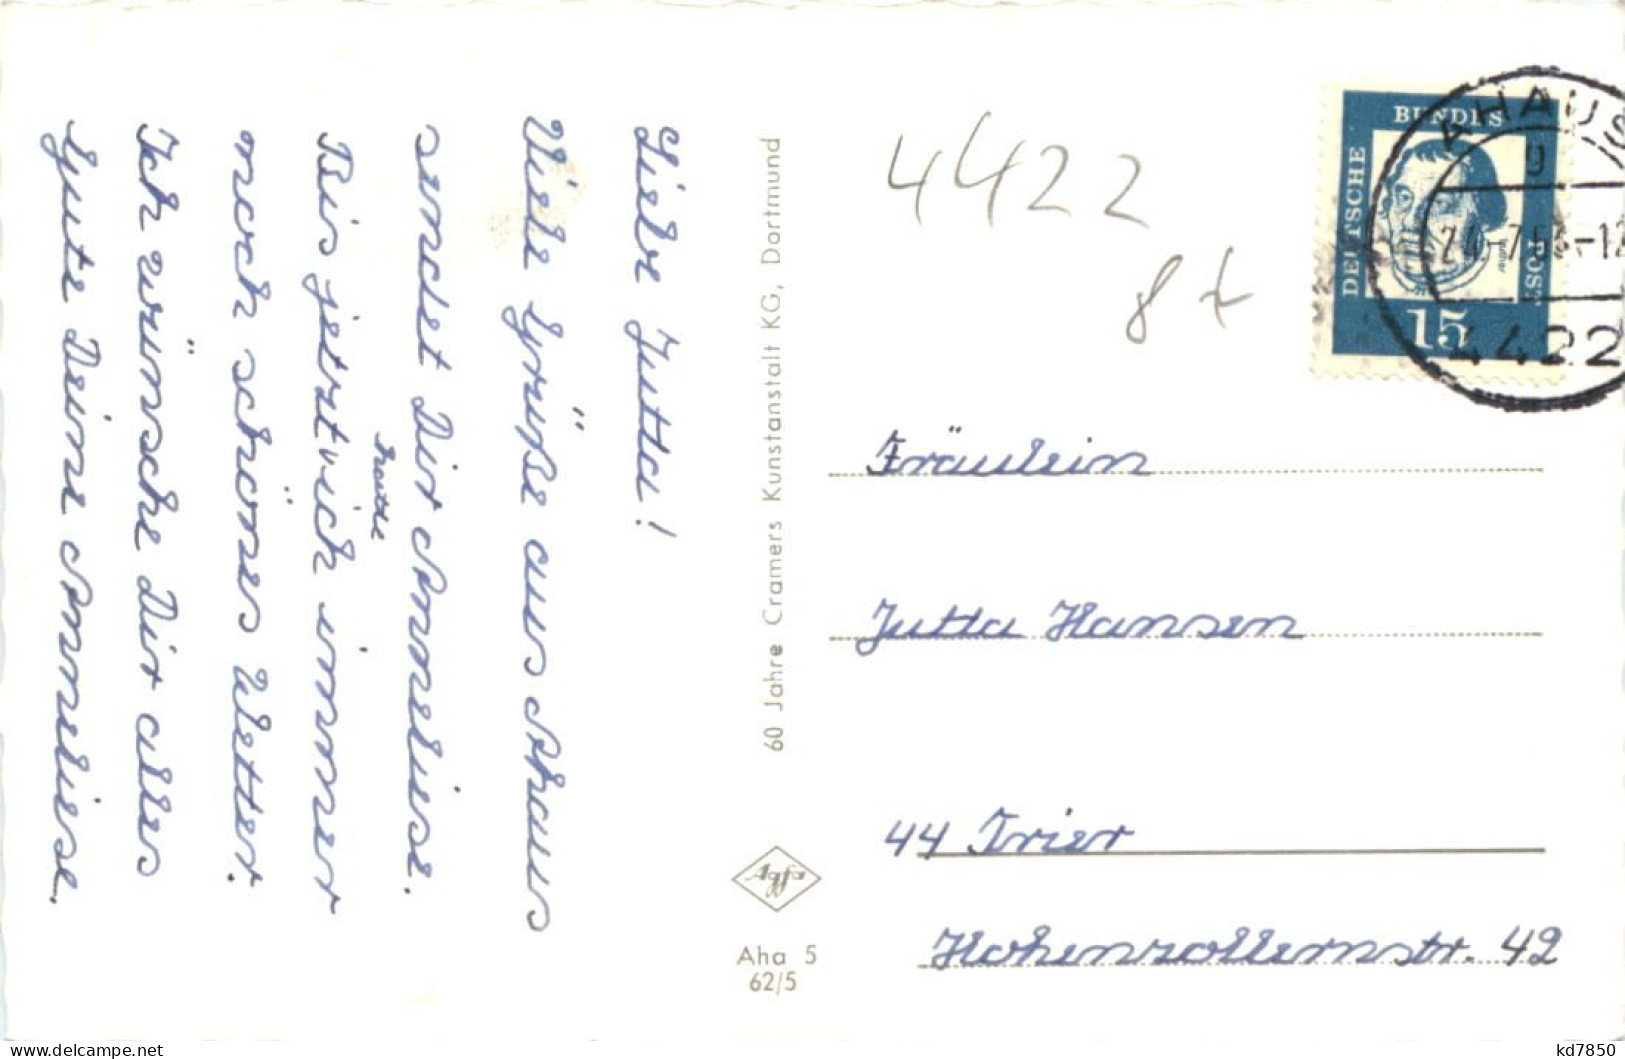 Liebe Jutta!
Viele Grüße aus Ahaus
sendet Dir Anneliese.
Bis jetzt hatte ich immer
noch schönes Wetter.
Ich wünsche Dir alles
Gute Deine Anneliese.
60 Jahre Cramers Kunstanstalt KG, Dortmund
Agfa
Aha 5
62/5
4422
DEUTSCHE BUNDESPOST
Luther
15
AHAUS
g
4422
Fräulein
Jutta Hansen
44 Trier
Hohenzollernstr. 42
delcampe.net
kd7850